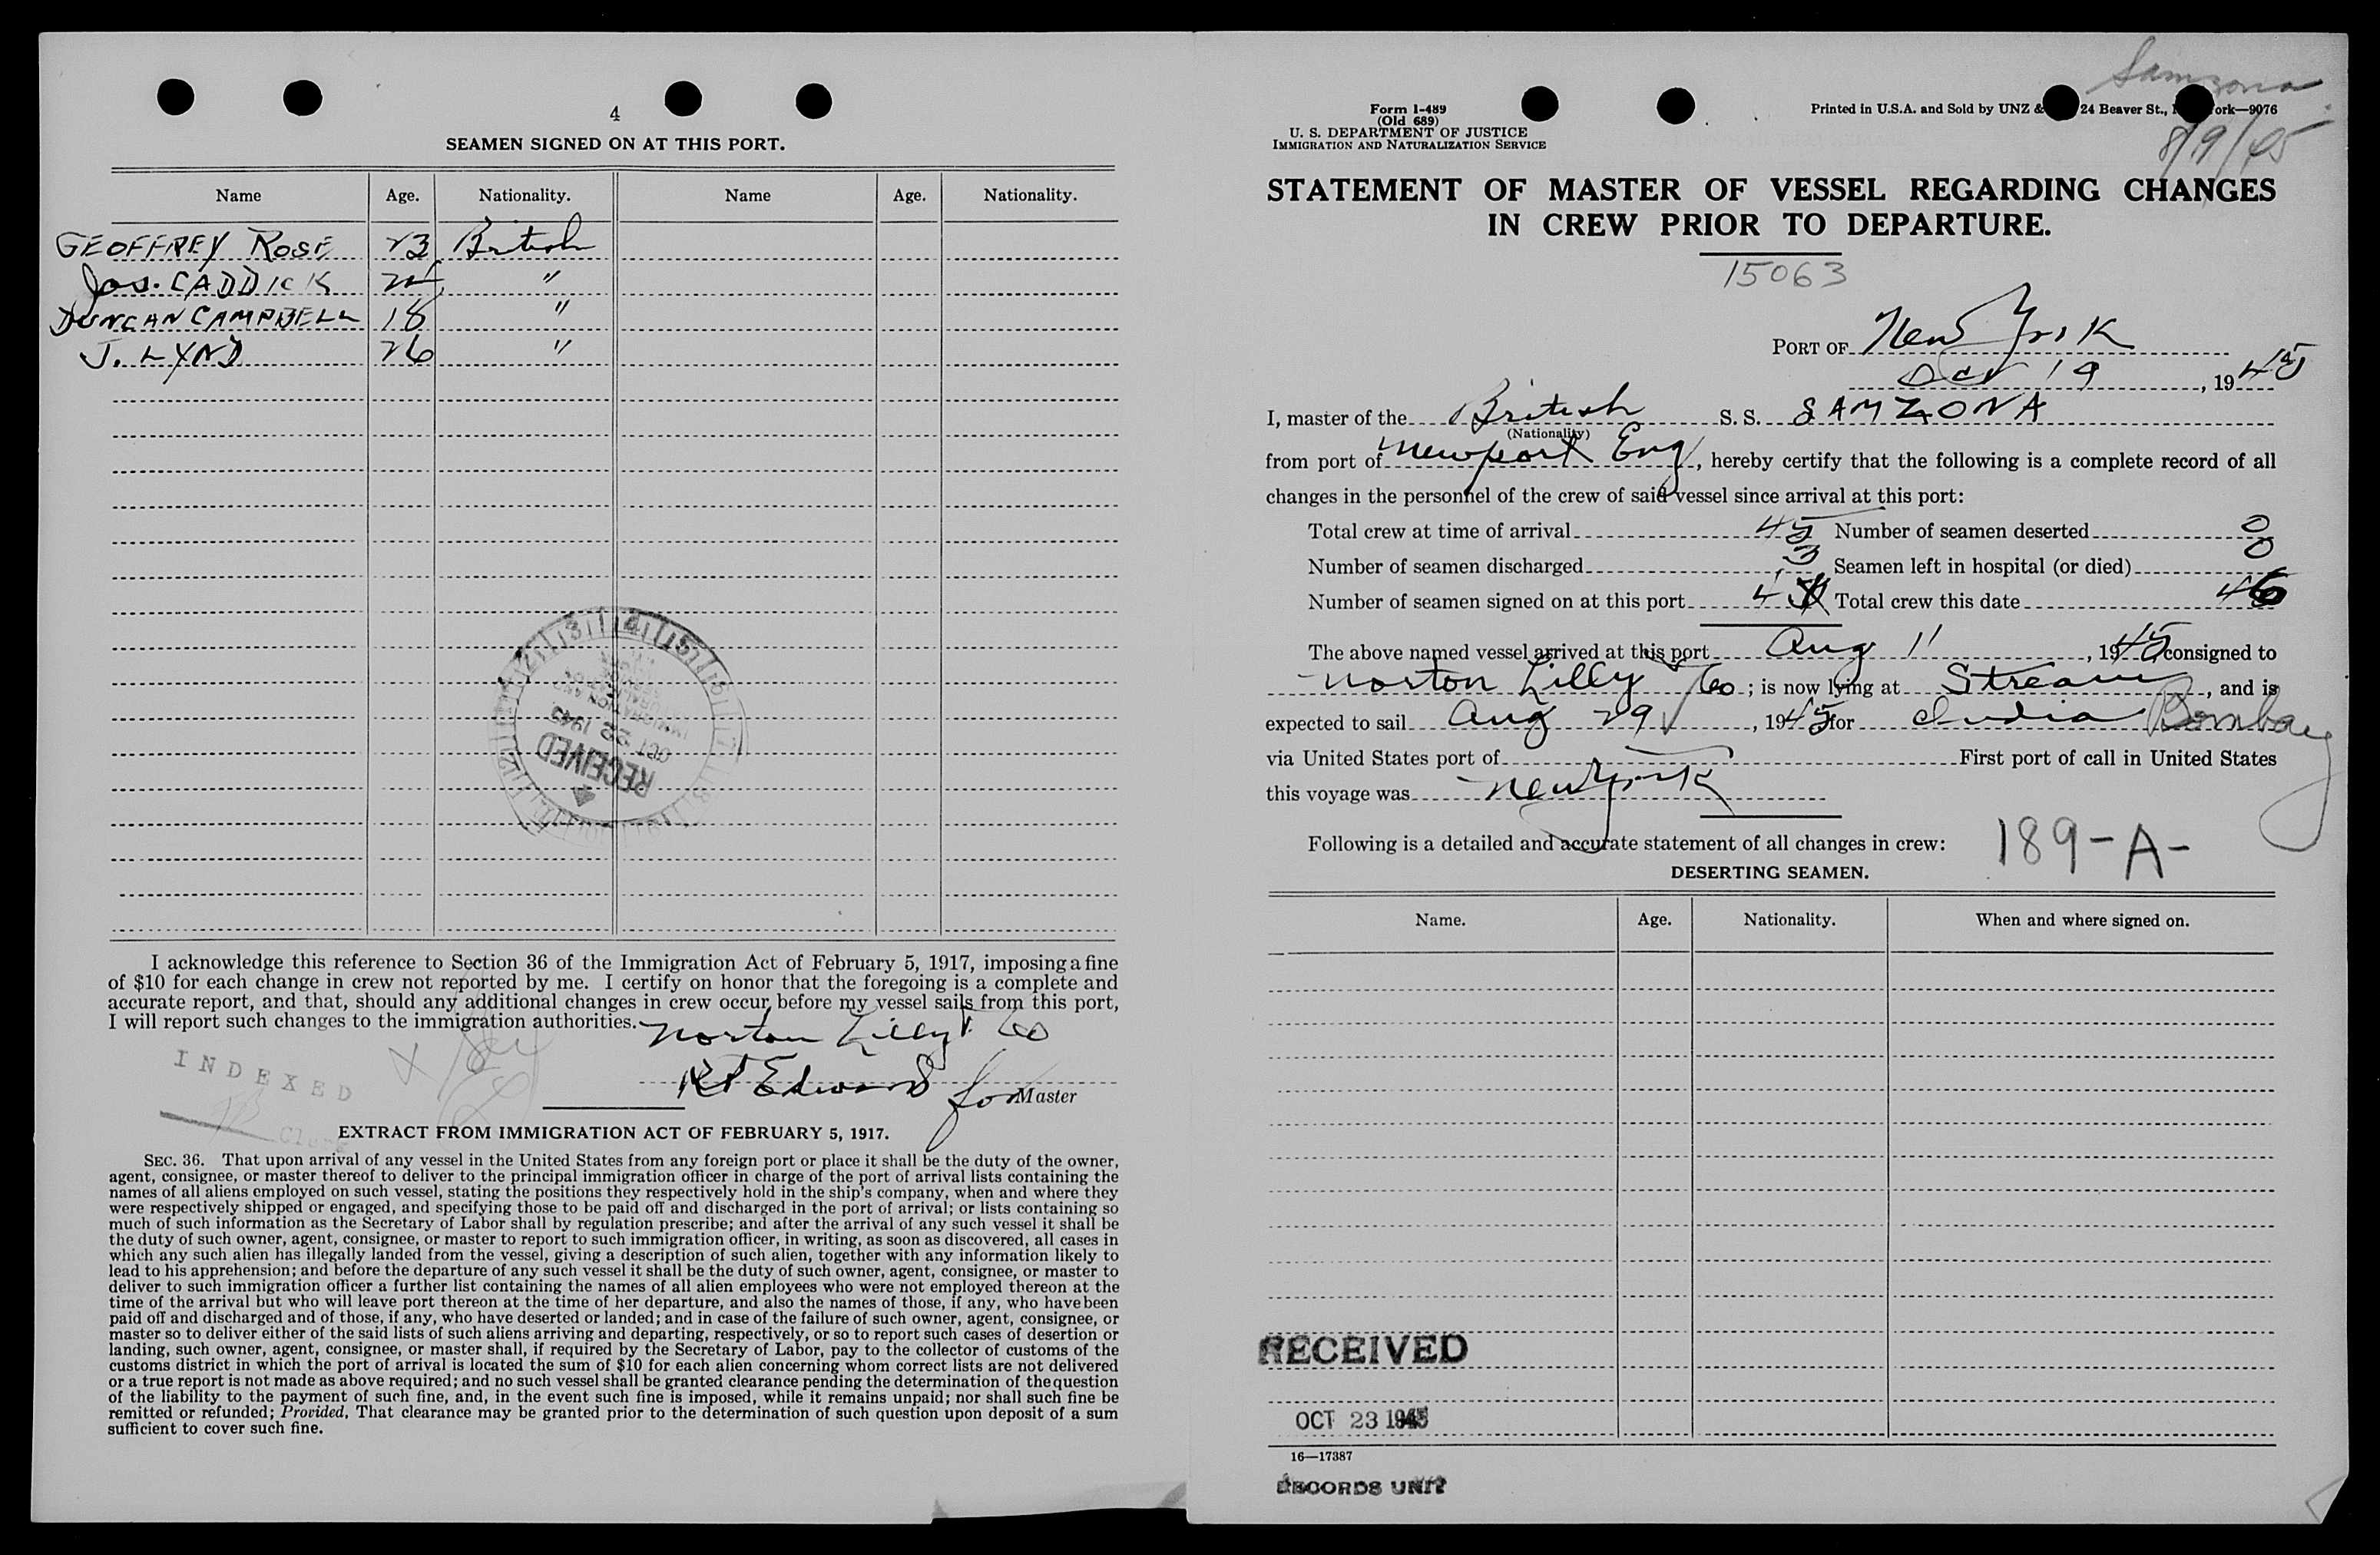 4
SEAMEN SIGNED ON AT THIS PORT.
Name Age. Nationality. Name Age. Nationality.
GEOFFREY ROSE 23 British
Jos. CADDICK "
DUNCAN CAMPBELL 18 "
J. LYND 26 "
RECEIVED
OCT 22 1945
IMMIGRATION AND
I acknowledge this reference to Section 36 of the Immigration Act of February 5, 1917, imposing a fine
of $10 for each change in crew not reported by me. I certify on honor that the foregoing is a complete and
accurate report, and that, should any additional changes in crew occur before my vessel sails from this port,
I will report such changes to the immigration authorities.
Norton Lilly & Co
Edwards for Master
INDEXED
EXTRACT FROM IMMIGRATION ACT OF FEBRUARY 5, 1917.
SEC. 36. That upon arrival of any vessel in the United States from any foreign port or place it shall be the duty of the owner,
agent, consignee, or master thereof to deliver to the principal immigration officer in charge of the port of arrival lists containing the
names of all aliens employed on such vessel, stating the positions they respectively hold in the ship's company, when and where they
were respectively shipped or engaged, and specifying those to be paid off and discharged in the port of arrival; or lists containing so
much of such information as the Secretary of Labor shall by regulation prescribe; and after the arrival of any such vessel it shall be
the duty of such owner, agent, consignee, or master to report to such immigration officer, in writing, as soon as discovered, all cases in
which any such alien has illegally landed from the vessel, giving a description of such alien, together with any information likely to
lead to his apprehension; and before the departure of any such vessel it shall be the duty of such owner, agent, consignee, or master to
deliver to such immigration officer a further list containing the names of all alien employees who were not employed thereon at the
time of the arrival but who will leave port thereon at the time of her departure, and also the names of those, if any, who have been
paid off and discharged and of those, if any, who have deserted or landed; and in case of the failure of such owner, agent, consignee, or
master so to deliver either of the said lists of such aliens arriving and departing, respectively, or so to report such cases of desertion or
landing, such owner, agent, consignee, or master shall, if required by the Secretary of Labor, pay to the collector of customs of the
customs district in which the port of arrival is located the sum of $10 for each alien concerning whom correct lists are not delivered
or a true report is not made as above required; and no such vessel shall be granted clearance pending the determination of the question
of the liability to the payment of such fine, and, in the event such fine is imposed, while it remains unpaid; nor shall such fine be
remitted or refunded; Provided, That clearance may be granted prior to the determination of such question upon deposit of a sum
sufficient to cover such fine.
Samzona
8/9/45
Form I-489
(Old 689)
U. S. DEPARTMENT OF JUSTICE
IMMIGRATION AND NATURALIZATION SERVICE
Printed in U.S.A. and Sold by UNZ & 24 Beaver St., ork—9076
STATEMENT OF MASTER OF VESSEL REGARDING CHANGES
IN CREW PRIOR TO DEPARTURE.
15063
PORT OF New York
Oct 19, 1945
I, master of the British S. S. SAMZONA
(Nationality)
from port of Newport Eng, hereby certify that the following is a complete record of all
changes in the personnel of the crew of said vessel since arrival at this port:
Total crew at time of arrival 45 Number of seamen deserted 0
Number of seamen discharged 3 Seamen left in hospital (or died) 0
Number of seamen signed on at this port 4 Total crew this date 46
The above named vessel arrived at this port Aug 11, 1945, consigned to
Norton Lilly & Co; is now lying at Stream, and is
expected to sail Aug 29, 1945 for India Bombay
via United States port of First port of call in United States
this voyage was New York
Following is a detailed and accurate statement of all changes in crew: 189-A-
DESERTING SEAMEN.
Name. Age. Nationality. When and where signed on.
RECEIVED
OCT 23 1945
16—17387
RECORDS UNIT